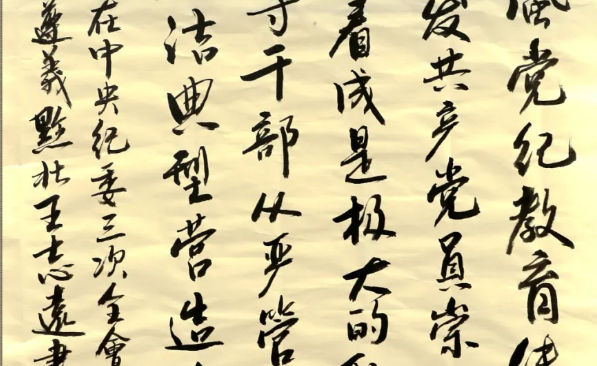 党纪教育
发共产党员崇
看成是极大的
干部从严管
洁典型营造
在中央纪委三次全会
遵义黔北王志远书